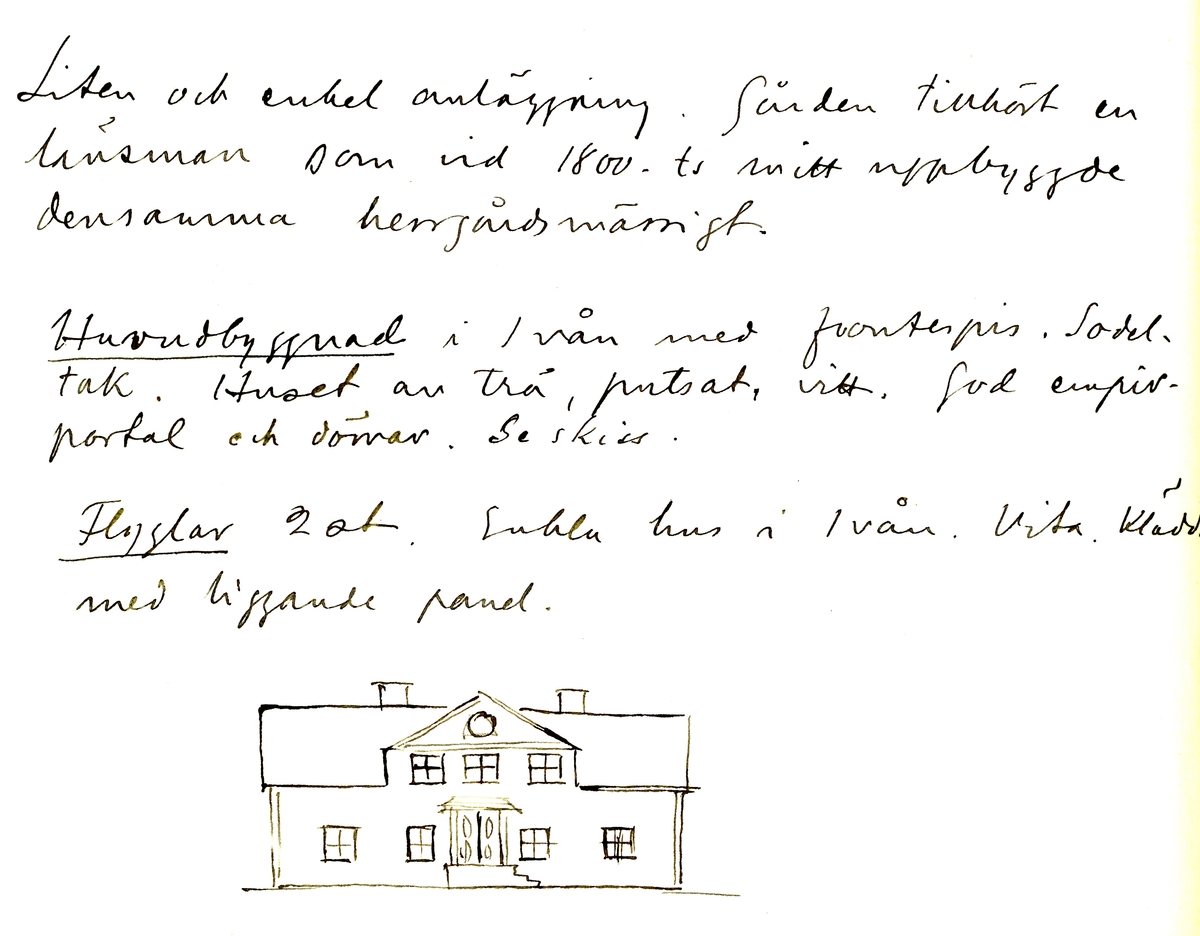 Liten och enkel anläggning. Gården tillhört en
länsman som vid 1800-ts mitt uppbyggde
densamma herrgårdsmässigt.
Huvudbyggnad i 1 vån med frontespis. Sadel-
tak. Huset av trä, putsat, vitt. God empir-
portal och dörrar. Se skiss.
Flyglar 2 st. Enkla hus i 1 vån. Vita. Klädd
med liggande panel.